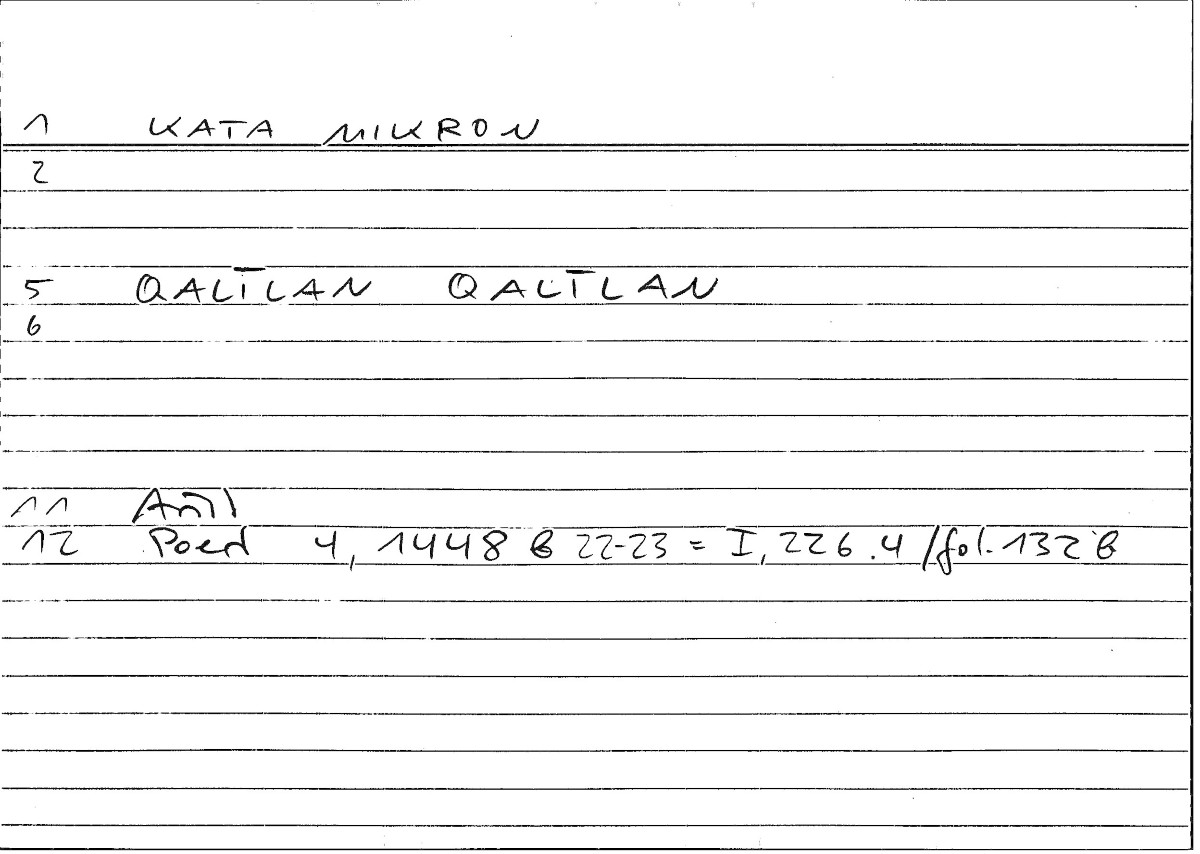 1 KATA MIKRON
2
5 QALĪLAN QALĪLAN
6
11
12 Poed 4, 1448 b 22-23 = I, 226.4 / fol. 132 b